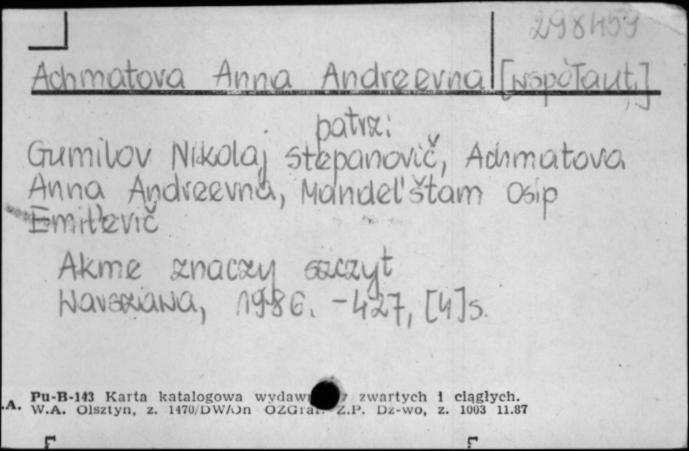 298459
Achmatova Anna Andreevna [współaut.]
patrz:
Gumilov Nikolaj Stepanovič, Achmatova
Anna Andreevna, Mandel'štam Osip
Emil'evič
Akme znaczy szczyt
Warszawa, 1986. - 427, [4] s.
Pu-B-143 Karta katalogowa zwartych i ciągłych.
.A. W.A. Olsztyn, z. 1470/DW/On OZGraf. Z.P. Dz-wo, z. 1003 11.87